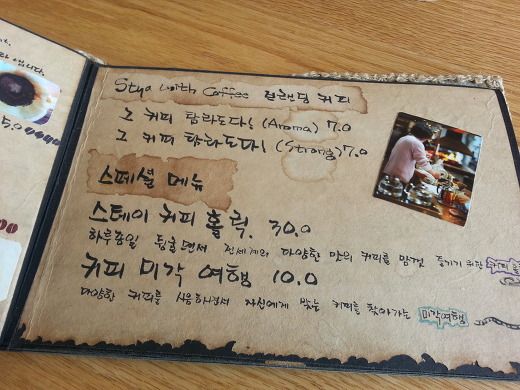 다 입니다.
5.0
00
Stya with Coffee 핸드드립 커피
그 커피 탐라도다! (Aroma) 7.0
그 커피 탐라도다! (Strong) 7.0
스페셜 메뉴
스테이 커피 홀릭. 30.0
하루종일 뒹굴면서 전세계의 다양한 맛의 커피를 맘껏 즐기기 위한 커피
커피 미각 여행 10.0
다양한 커피를 시음하면서 자신에게 맞는 커피를 찾아가는 미각여행